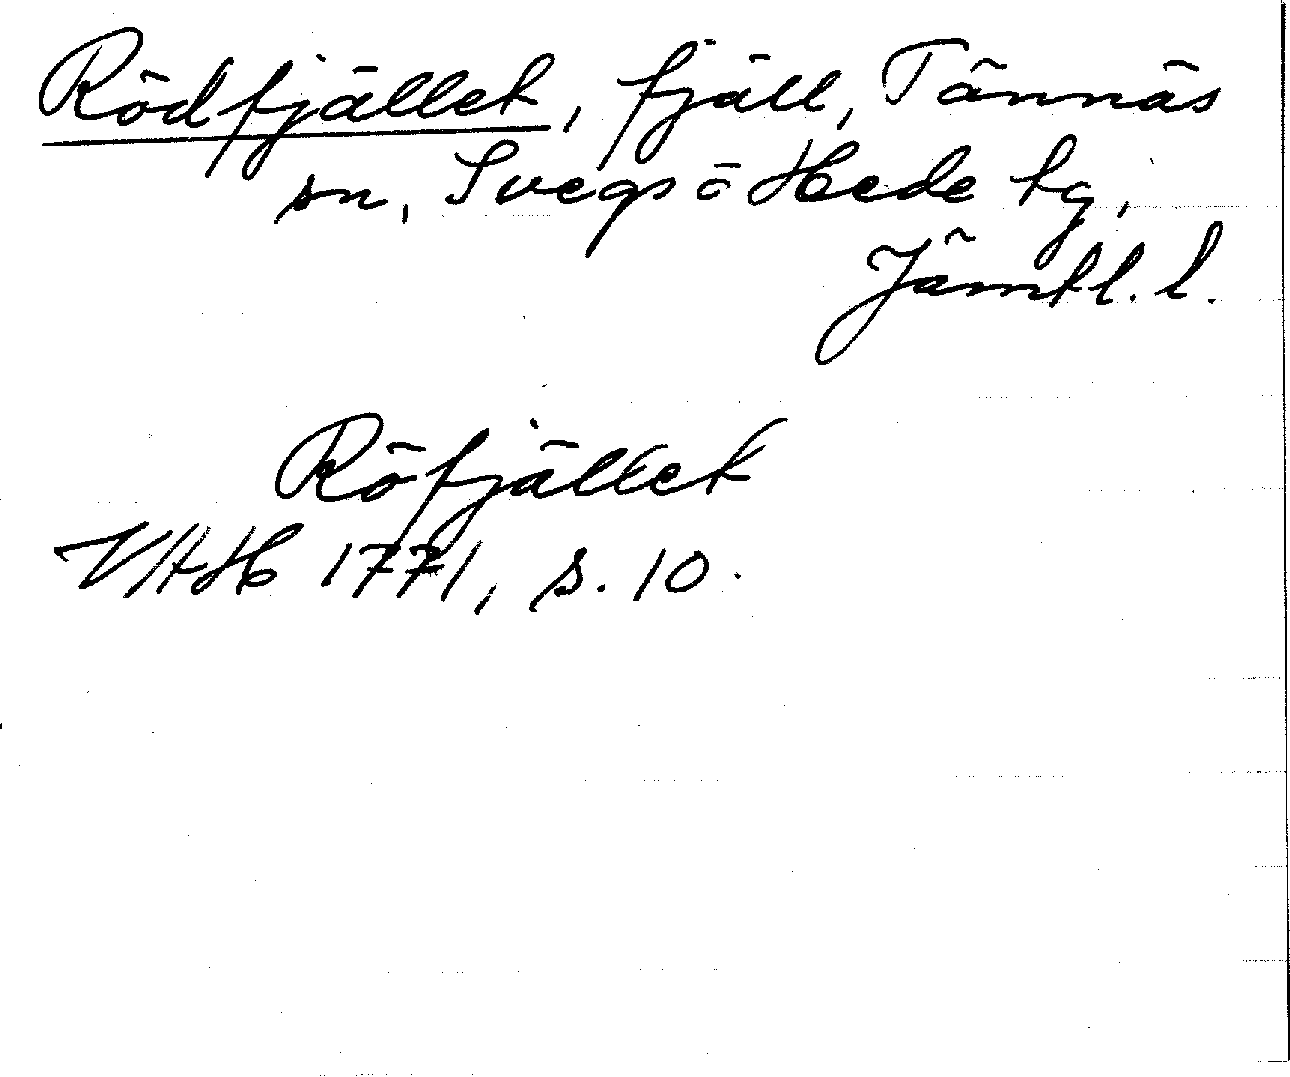 Rödfjället, fjäll, Tännäs
sn, Svegs o Hede tg,
Jämtl. l.
Röfjället
VHAH 1771, s. 10.